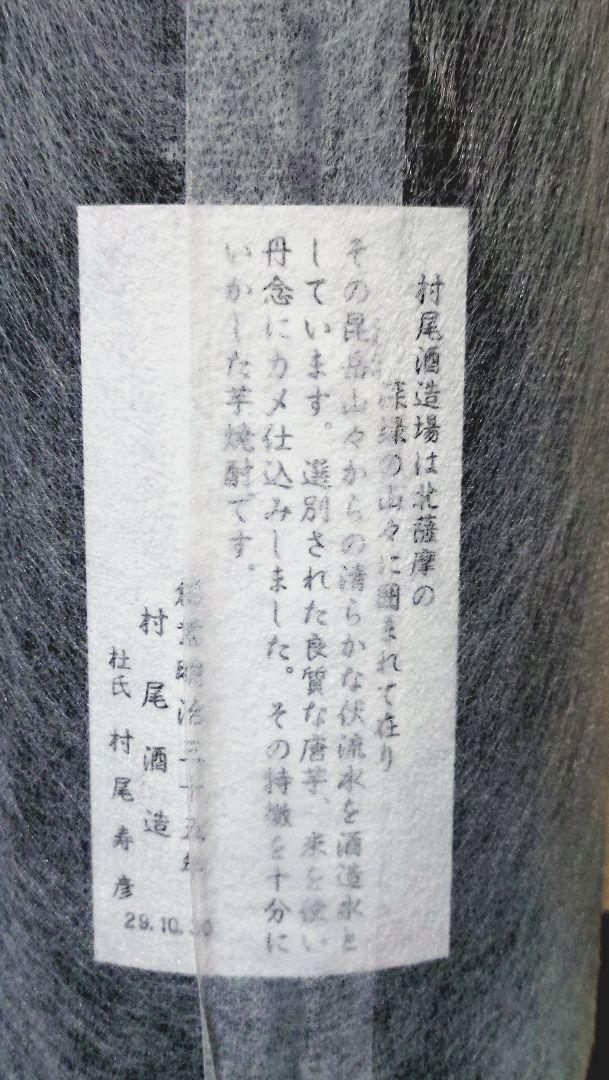 村尾酒造場は北薩摩の
深緑の山々に囲まれて在り
その昆岳山々からの清らかな伏流水を酒造水と
しています。選別された良質な唐芋、米を使い
丹念にカメ仕込みしました。その特徴を十分に
いかした芋焼酎です。
創業明治三十五年
村尾酒造
杜氏 村尾寿彦
29.10.